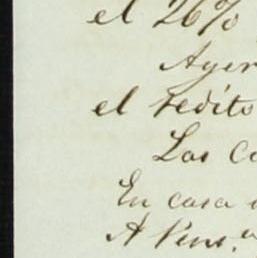 el 26%
Ayer
el redito
Las C
En casa
A Vens.ª